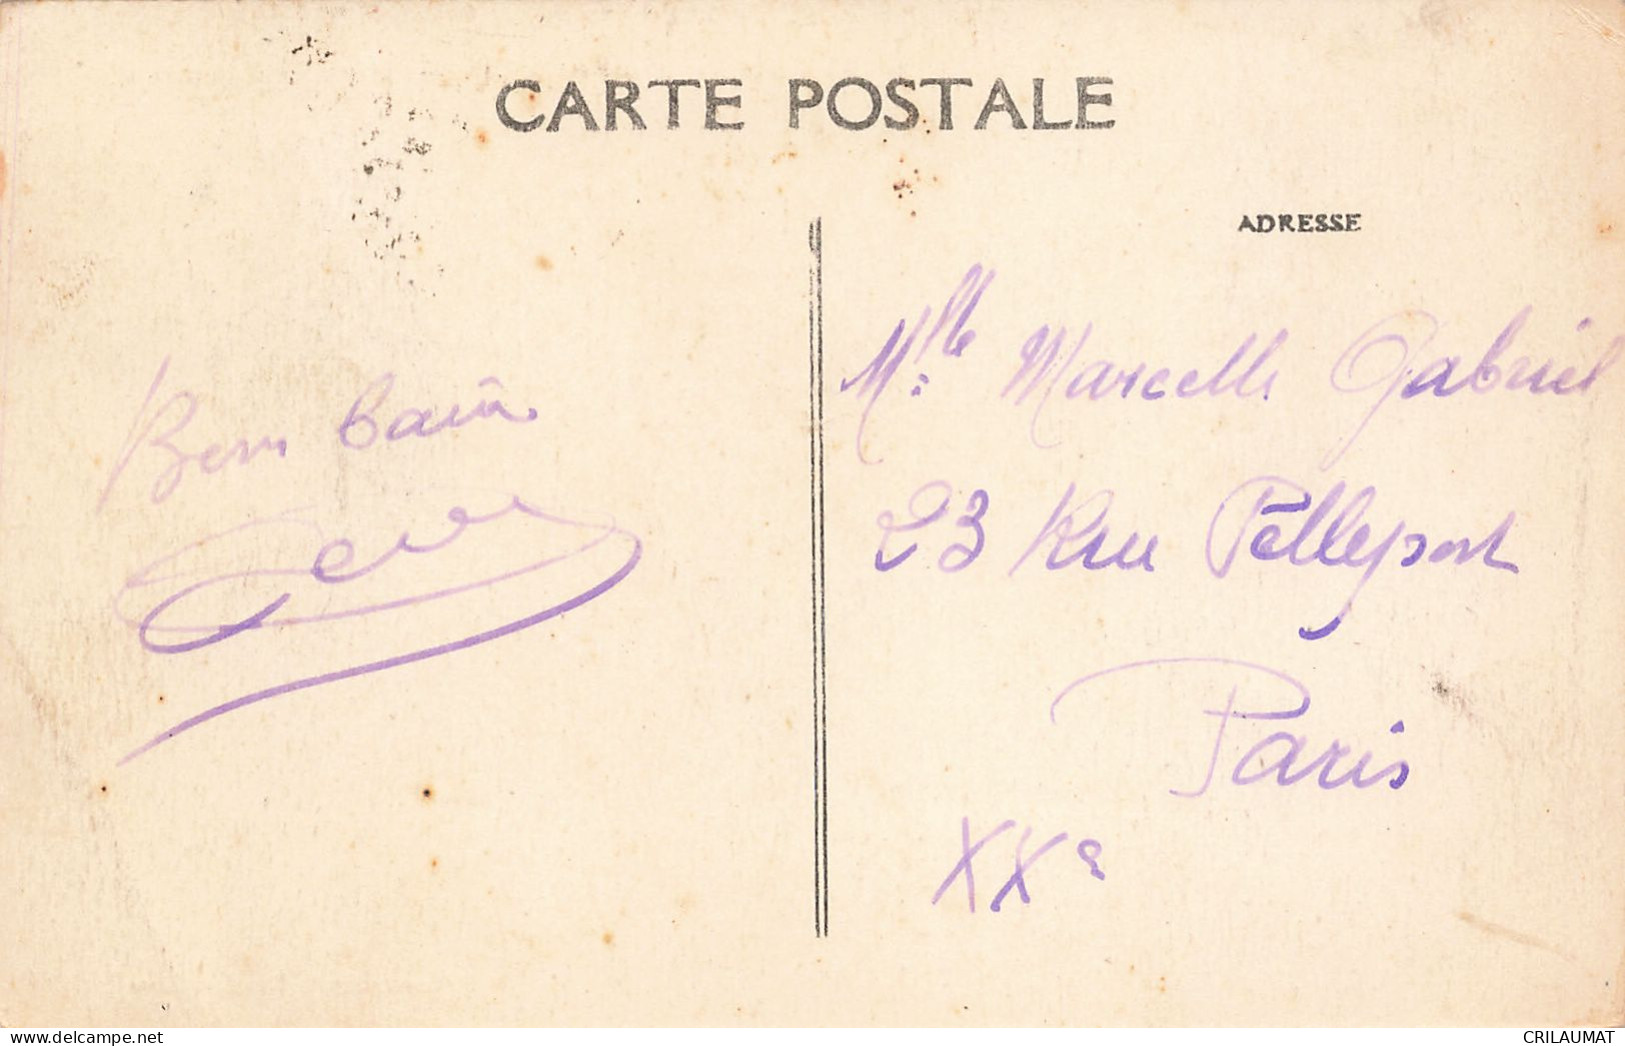 CARTE POSTALE
ADRESSE
Mlle Marcelle Gabriel
23 Rue Pellepor​t
Paris
XXe
www.delcampe.net
CRILAUMAT